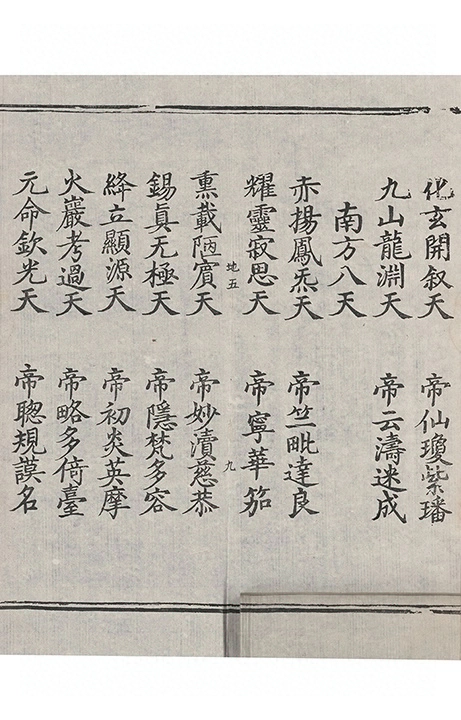 化玄開叙天 帝仙瓊紫璠
九山龍淵天 帝云濤迷成
南方八天
赤揚鳳炁天 帝竺毗達良
耀靈寂思天 帝寧華笳
地五 九
熏載陋賔天 帝妙瀆慈恭
錫眞无極天 帝隱梵多容
絳立顯源天 帝初炎英摩
火巖考過天 帝略多倚臺
元命欽光天 帝聰規謨名